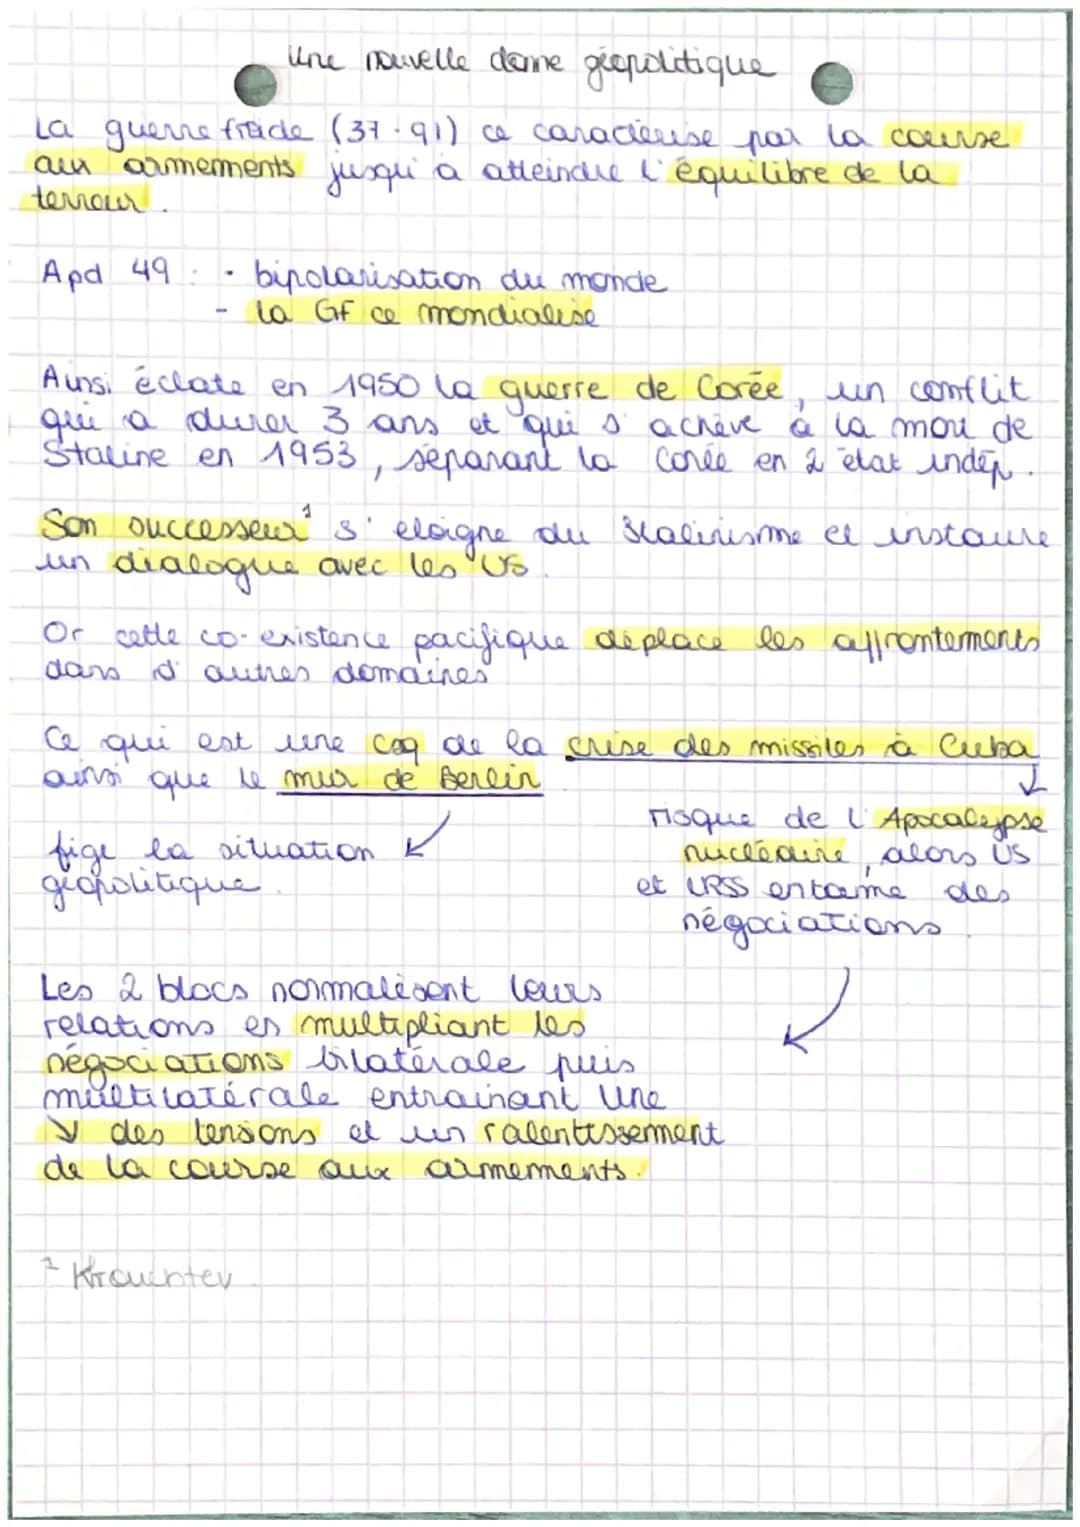 Une nouvelle donne géopolitique
La guerre froide (37-91) ce caractérise par la course
aux armements jusqu'à atteindre l'équilibre de la
terreur.
Apd 49 : - bipolarisation du monde
- la GF ce mondialise
Ainsi éclate en 1950 la guerre de Corée, un conflit
qui a durer 3 ans et qui s'achève à la mort de
Staline en 1953, séparant la Corée en 2 état indép.
Son successeur¹ s'eloigne du Stalinisme et instaure
un dialogue avec les US.
Or cette co-existence pacifique déplace les affrontements
dans d'autres domaines
Ce qui est une csq de la crise des missiles à Cuba
ainsi que le mur de Berlin
↓
risque de l'Apocalypse
nucléaire, alors US
et URSS entame des
négociations.
fige la situation ↙
géopolitique.
Les 2 blocs normalisent leurs
relations en multipliant les
négociations bilatérale puis
multilatérale entrainant Une
↘ des tensions et un ralentissement
de la course aux armements.
¹ Krouchtev